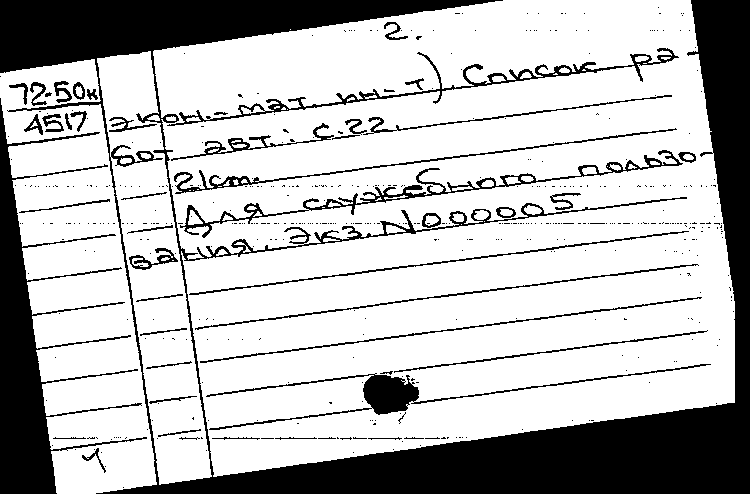 2.
72-50к
4517
экон.-мат. ин-т). Список ра-
бот авт.: с.22.
21см.
Для служебного пользо-
вания. Экз. N000005.